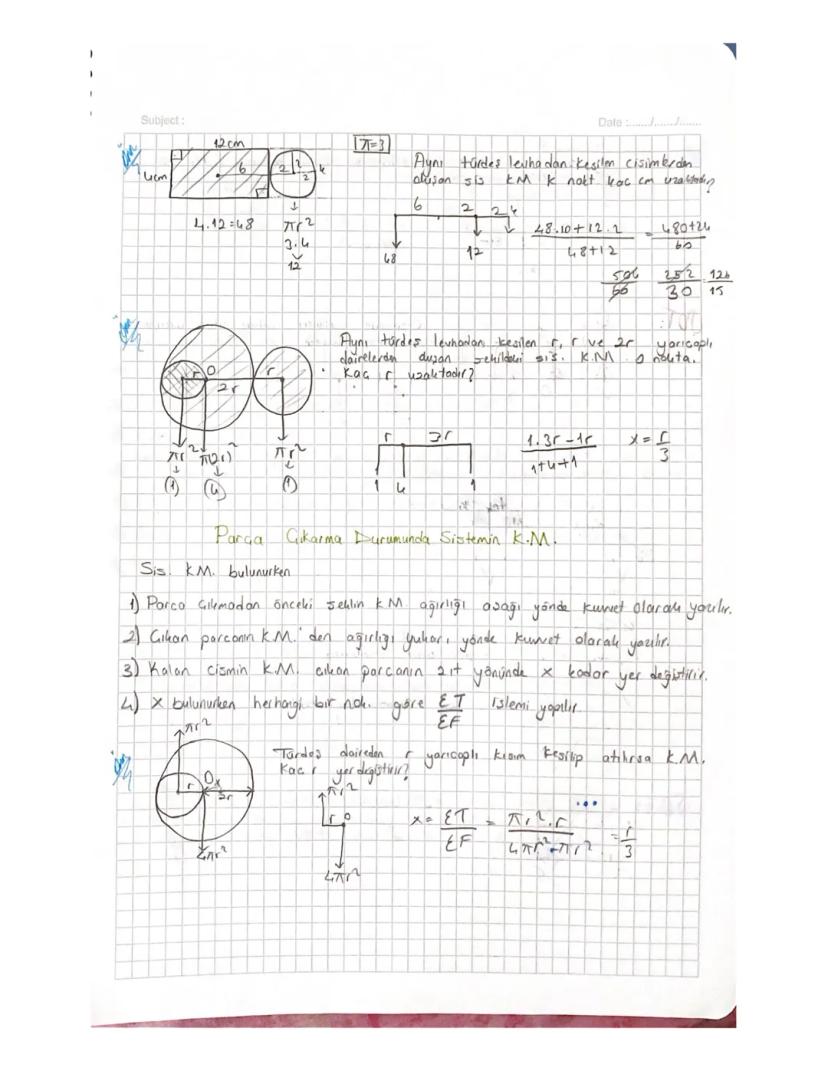 Subject :
Date :......./......./.......
12 cm
π=3
4cm
6
2
2
2
k
Aynı türdes levhadan kesilen cisimlerden
oluşan sis KM K nokt kac cm uzaktadır?
4.12=48
πr²
3.4
12
6 2 2 k
48
12
48.10+12.2 / 48+12 = 480+24 / 60
504/60 252/30 = 126/15
Aynı türdes levhadan kesilen r, r ve 2r yarıcaplı
dairelerden oluşan şekildeki sis. K.M. O nokta.
Kac r uzaktadır?
r O r
2r
πr² π(2r)² πr²
1 4 1
r 3r
1 4 1
1.3r-1r / 1+4+1
x = r/3
Parca Cıkarma Durumunda Sistemin K.M.
Sis. KM. bulunurken
1) Parca cıkmadan önceki seklin KM ağırlığı aşağı yönde kuvvet olarak yazılır.
2) Cıkan parcanın KM.'den ağırlığı yukarı yönde kuvvet olarak yazılır.
3) Kalan cismin K.M. cıkan parcanın zıt yönünde x kadar yer değiştirir.
4) x bulunurken herhangi bir nok. göre ΣT/ΣF islemi yapılır.
πr²
Türdes daireden r yarıcaplı kısım kesilip atılırsa K.M.
Kac r yer değiştirir?
r O x
2r
4πr²
πr²
r O
4πr²
x = ΣT/ΣF = πr².r / 4πr²-πr² = r/3